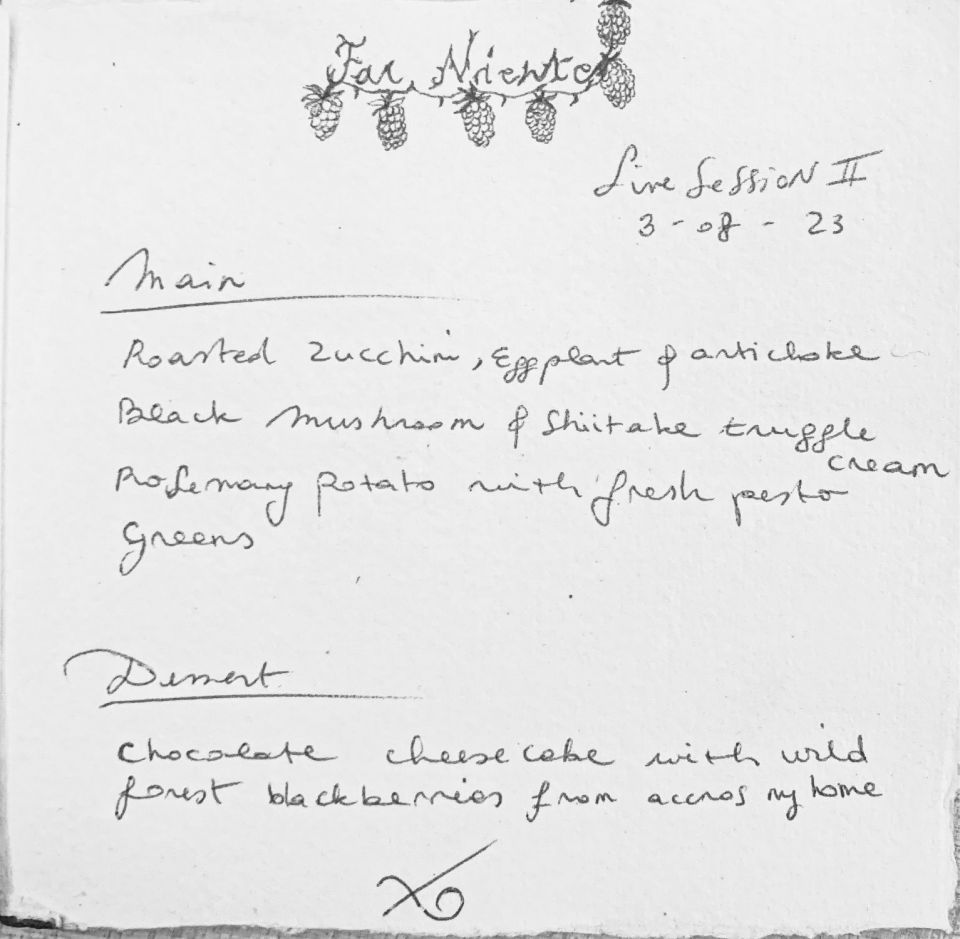 Far Niente
Live Session II
3 - 08 - 23
Main
Roasted Zucchini, Eggplant & artichoke
Black mushroom & Shiitake truggle
cream
Rosemary potato with fresh pesto
Greens
Dessert
Chocolate cheesecake with wild
forest blackberries from accros my home